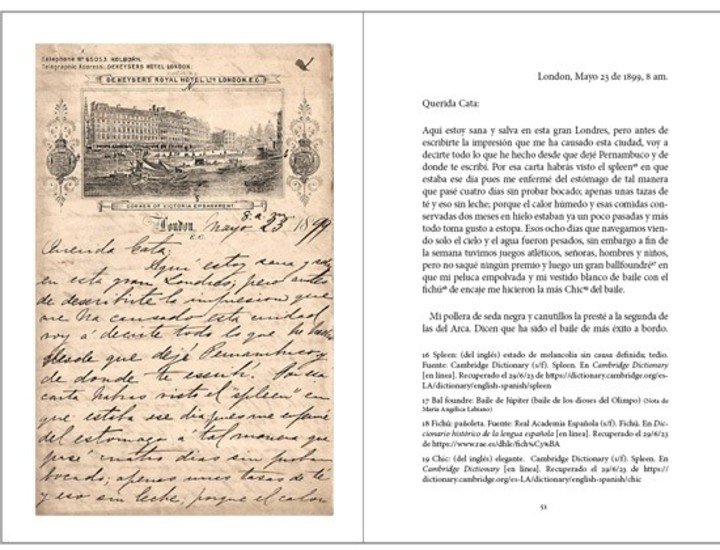 Telephone Nº 65053. HOLBORN.
Telegraphic Address: DEKEYSERS HOTEL LONDON.
DE KEYSERS ROYAL HOTEL, LTD LONDON. E.C.
CORNER OF VICTORIA EMBANKMENT.
8. a. m.
London, Mayo 23 1899
E.C.
Querida Cata:
Aquí estoy sana y salva
en esta gran Londres, pero antes
de escribirte la impresion que
me ha causado esta ciudad
voy á decirte todo lo que he hecho
desde que dejé Pernambuco y
de donde te escribí. Por esa
carta habrás visto el "spleen" en
que estaba ese dia pues me enfermé
del estomago á tal manera que
pasé cuatro dias sin probar
bocado; apenas unas tazas de té
y eso sin leche; porque el calor
London, Mayo 23 de 1899, 8 am.
Querida Cata:
Aquí estoy sana y salva en esta gran Londres, pero antes de
escribirte la impresión que me ha causado esta ciudad, voy a
decirte todo lo que he hecho desde que dejé Pernambuco y de
donde te escribí. Por esa carta habrás visto el spleen¹⁶ en que
estaba ese día pues me enfermé del estómago de tal manera
que pasé cuatro días sin probar bocado; apenas unas tazas de
té y eso sin leche; porque el calor húmedo y esas comidas con-
servadas dos meses en hielo estaban ya un poco pasadas y más
todo toma gusto a estopa. Esos ocho días que navegamos vien-
do solo el cielo y el agua fueron pesados, sin embargo a fin de
la semana tuvimos juegos atléticos, señoras, hombres y niños,
pero no saqué ningún premio y luego un gran ballfoundré¹⁷ en
que mi peluca empolvada y mi vestido blanco de baile con el
fichú¹⁸ de encaje me hicieron la más Chic¹⁹ del baile.
Mi pollera de seda negra y canutillos la presté a la segunda de
las del Arca. Dicen que ha sido el baile de más éxito a bordo.
16 Spleen: (del inglés) estado de melancolía sin causa definida; tedio.
Fuente: Cambridge Dictionary (s/f). Spleen. En Cambridge Dictionary
[en línea]. Recuperado el 29/6/23 de https://dictionary.cambridge.org/es-
LA/dictionary/english-spanish/spleen
17 Bal foundre: Baile de Júpiter (baile de los dioses del Olimpo) (Nota de
María Angélica Labiano)
18 Fichú: pañoleta. Fuente: Real Academia Española (s/f). Fichú. En Dic-
cionario histórico de la lengua española [en línea]. Recuperado el 29/6/23
de https://www.rae.es/dhle/fich%C3%BA
19 Chic: (del inglés) elegante. Cambridge Dictionary (s/f). Spleen. En
Cambridge Dictionary [en línea]. Recuperado el 29/6/23 de https://
dictionary.cambridge.org/es-LA/dictionary/english-spanish/chic
51